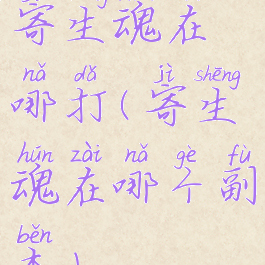 寄生魂在
nǎ dǎ jì shēng
哪打(寄生
hún zài nǎ gè fù
魂在哪个副
běn
本)